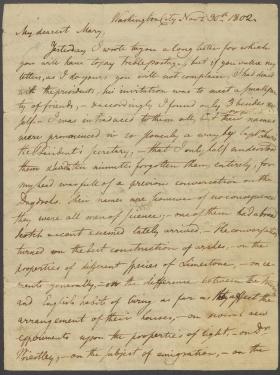 Washington City Nov. 30th. 1802.
My dearest Mary,
Yesterday I wrote to you a long letter for which
you will have to pay treble postage, but if you value my
letters, as I do yours you will not complain. I had dined
with the president; his invitation was to meet a small par-
ty of friends, accordingly I found only 3 besides my-
self. I was introduced to them all, but their names
were pronounced in so a way by
the President's secretary, that I only half understood
them & in minutes forgotten them entirely; for
my head was full of a previous conversation on the
Drydocks. Their names was however of no consequence
they were all men of science; one of them had a broad
Scotch accent & seemed lately arrived. The conversation
turned on the best construction of arches, on the
properties of different species of Limestone, on ce-
ments generally, on the difference between the
and English habits of living as far as they affect the
arrangement of their houses, on several new
experiments upon the properties of light, on Dr
Priestley, on the subject of emigration, on the